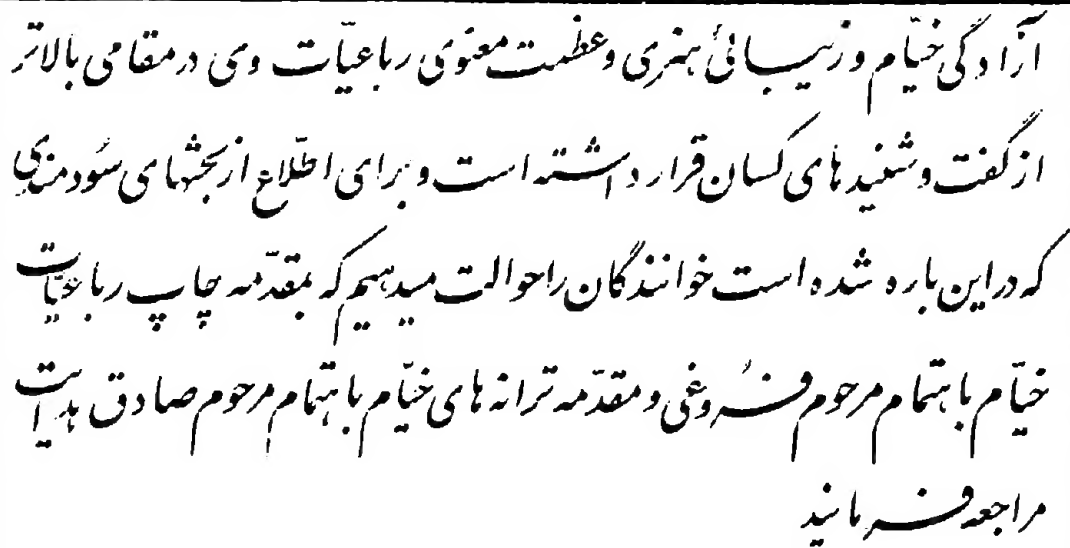 آزادگی خیّام و زیبائی هنری و عظمت معنوی رباعیّات وی در مقامی بالاتر
از گفت و شنیدهای کسان قرار داشته است و برای اطّلاع از بحثهای سودمندی
که در این باره شده است خوانندگان را حوالت میدهیم که بمقدّمه چاپ رباعیّات
خیّام باهتمام مرحوم فروغی و مقدّمه ترانه های خیّام باهتمام مرحوم صادق هدایت
مراجعه فرمایند